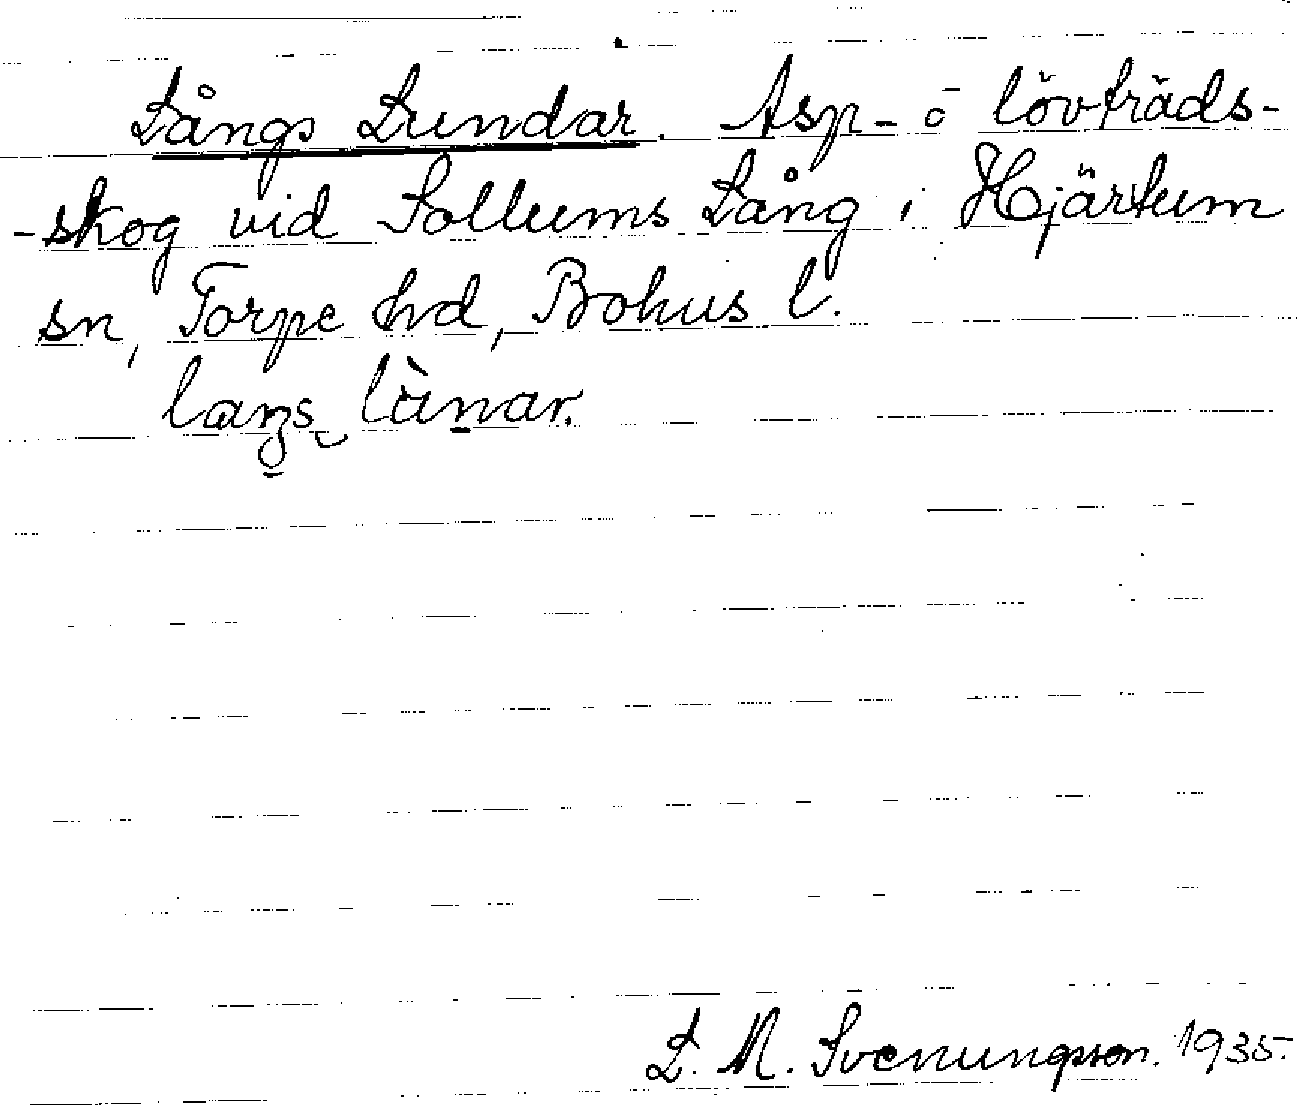 Långs Lundar. Asp- o lövträds-
-skog vid Sollums Lång i Hjärtum
sn, Torpe hd, Bohus l.
laŋs lùnar.
L. M. Svenungsson. 1935.